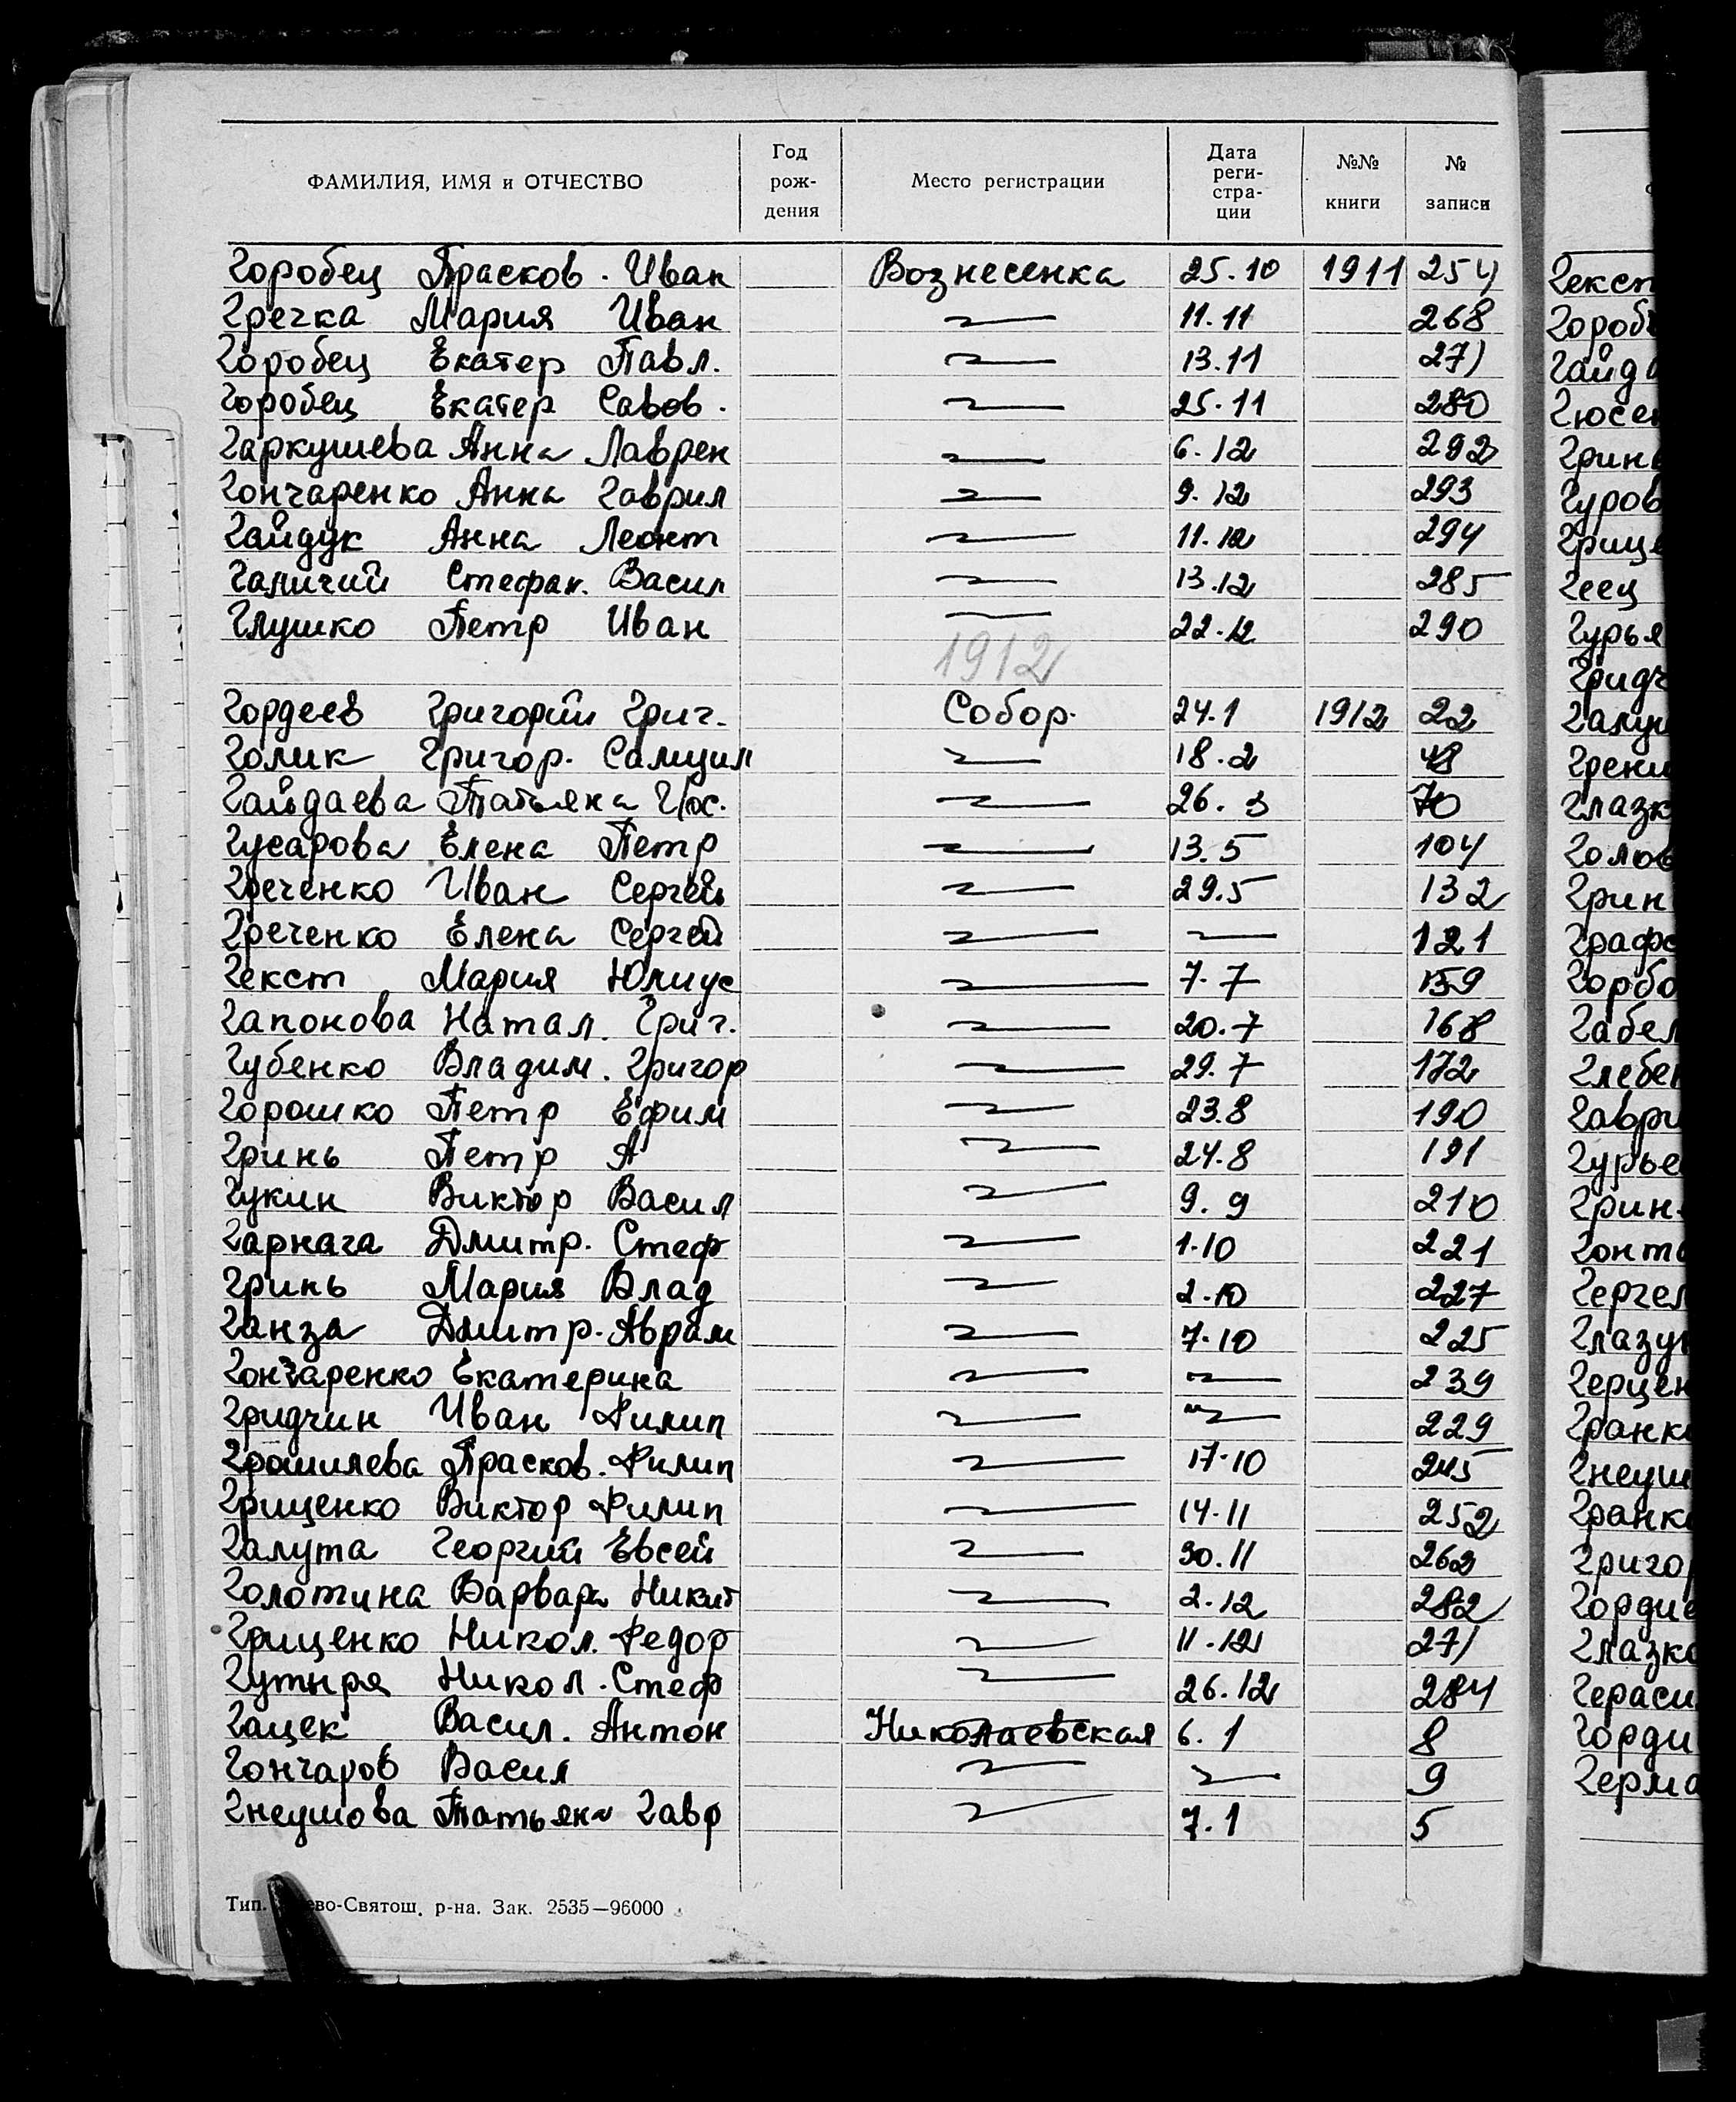 ФАМИЛИЯ, ИМЯ и ОТЧЕСТВО Год рождения Место регистрации Дата регистрации №№ книги № записи
Горобец Прасков. Иван Вознесенка 25.10 1911 254
Гречка Мария Иван 11.11 268
Горобец Екатер Павл. 13.11 271
Горобец Екатер Савов. 25.11 280
Гаркушева Анна Лаврен 6.12 292
Гончаренко Анна Гаврил 9.12 293
Гайдук Анна Леонт 11.12 294
Галичий Стефан. Васил 13.12 285
Глушко Петр Иван 22.12 290
1912
Гордеев Григорий Григ. Собор. 24.1 1912 22
Голик Григор. Самуил 18.2 48
Гайдаева Татьяна Иос. 26.3 70
Гусарова Елена Петр 13.5 104
Греченко Иван Сергей 29.5 132
Греченко Елена Сергей 121
Гекст Мария Юлиус 7.7 159
Гапонова Натал. Григ. 20.7 168
Губенко Владим. Григор 29.7 172
Горошко Петр Ефим 23.8 190
Гринь Петр А 24.8 191
Гукин Виктор Васил 9.9 210
Гарнага Дмитр. Стеф 1.10 221
Гринь Мария Влад 2.10 227
Ганза Дмитр. Аврам 7.10 225
Гончаренко Екатерина 239
Гридчин Иван Филип 229
Грошилева Прасков. Филип 17.10 245
Грищенко Виктор Филип 14.11 252
Галута Георгий Евсей 30.11 262
Голотина Варвара Никит 2.12 282
Грищенко Никол. Федор 11.12 271
Гутыря Никол. Стеф 26.12 284
Гацек Васил. Антон Николаевская 6.1 8
Гончаров Васил 9
Гнеушова Татьяна Гавр 7.1 5
Тип. ево-Святош. р-на. Зак. 2535—96000